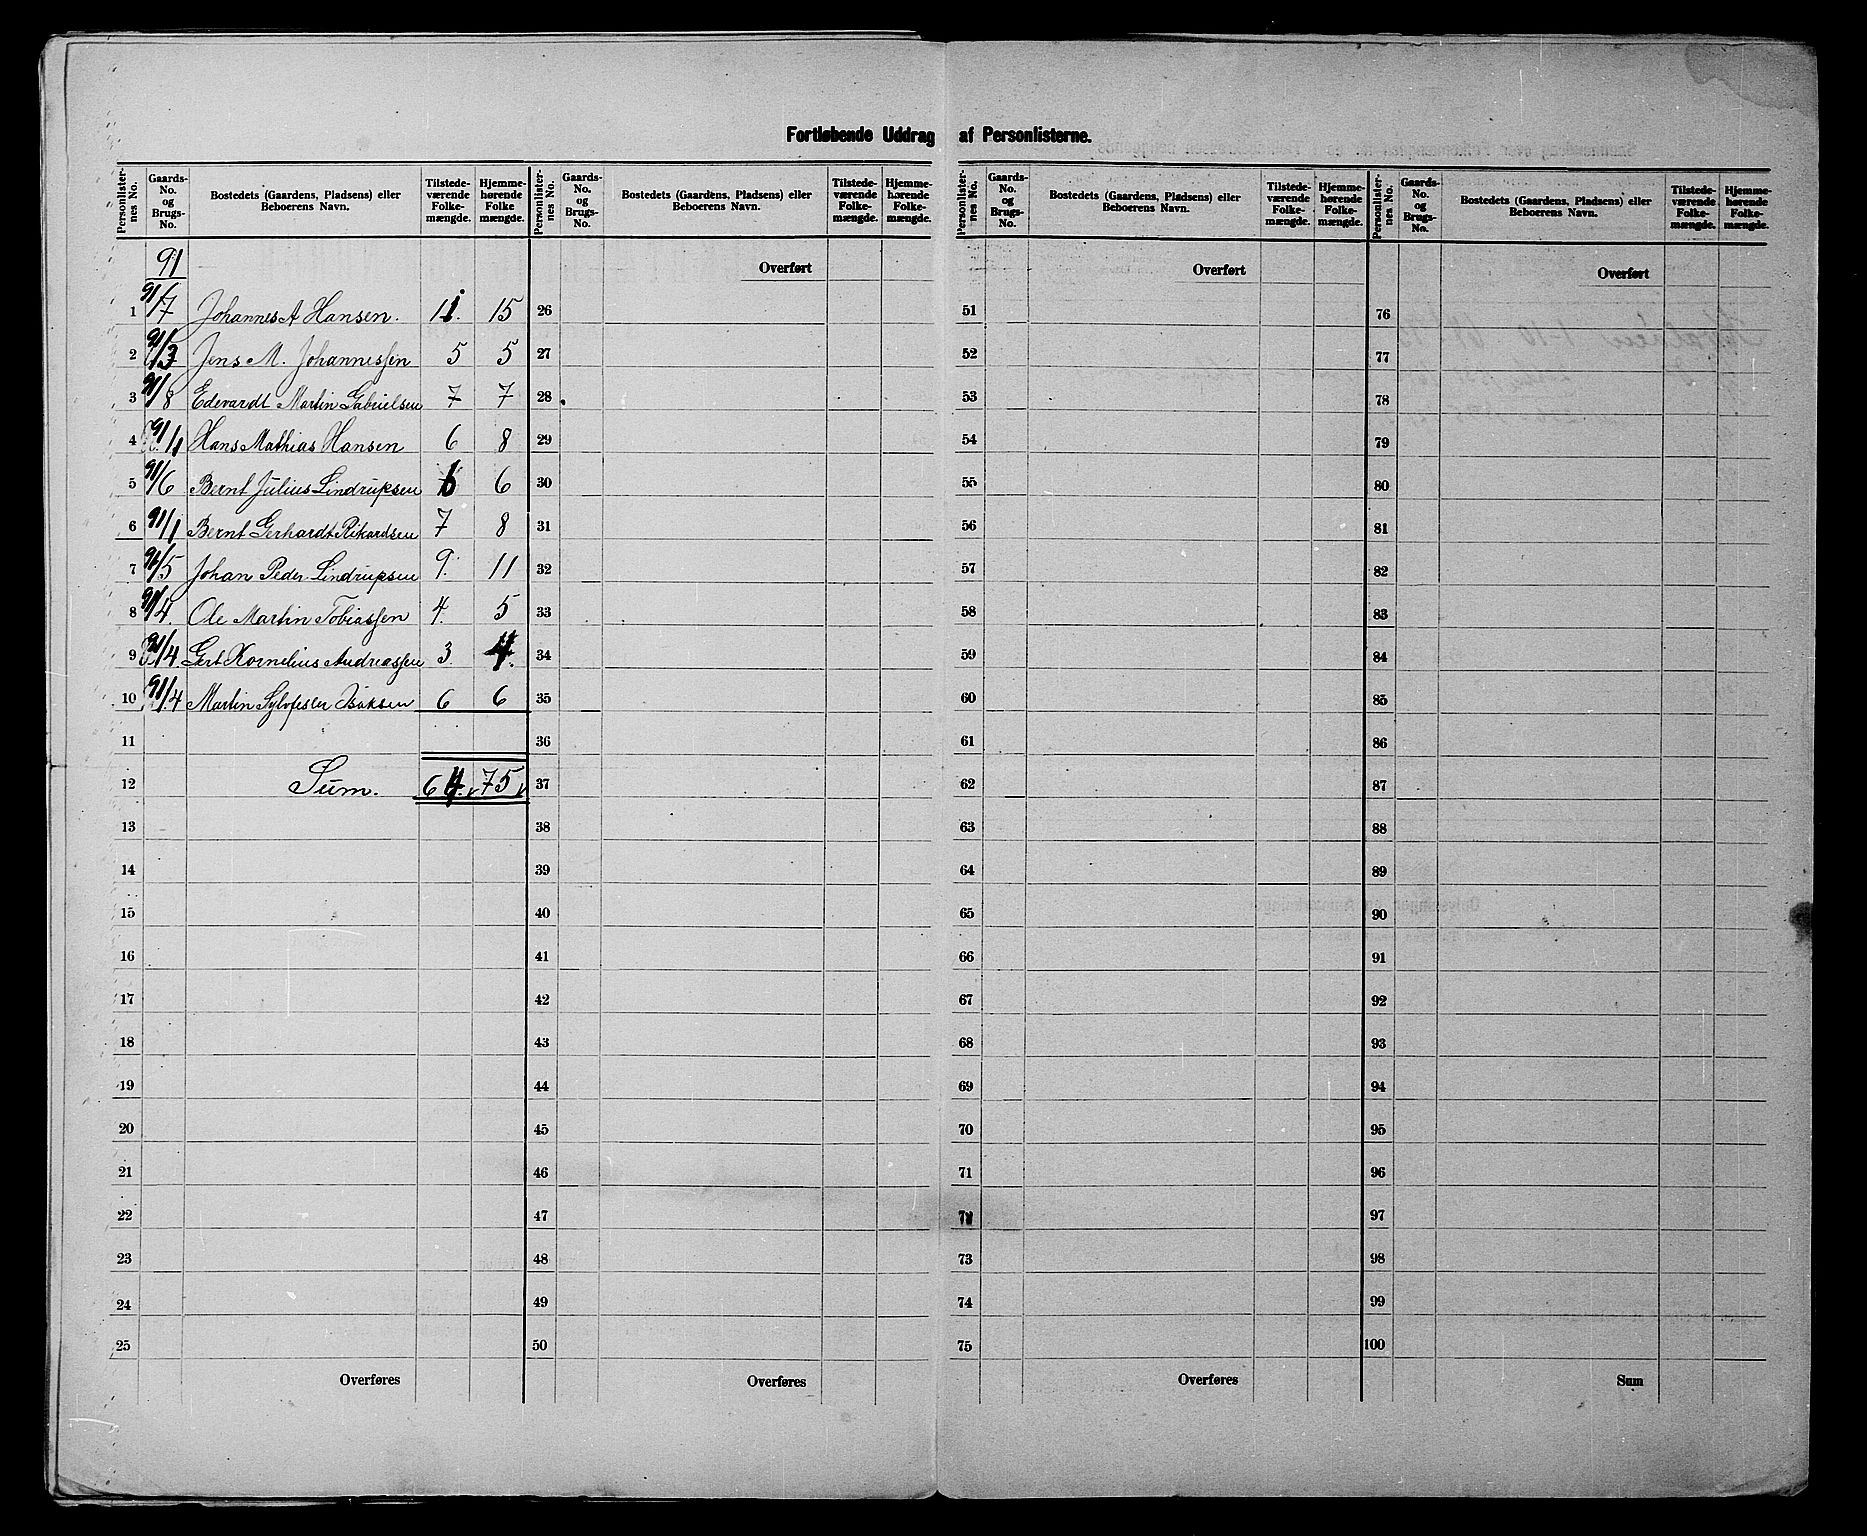 Fortløbende Uddrag af Personlisterne.
Personlister-nes No. Gaards-No. og Brugs-No. Bostedets (Gaardens, Pladsens) eller Beboerens Navn. Tilstede-værende Folke-mængde. Hjemme-hørende Folke mængde.
91
1 91/7 Johannes A Hansen. 11. 15
2 91/3 Jens M. Johannessen 5 5
3 91/8 Edevardt Martin Gabrielsen 7 7
4 91/1 Hans Mathias Hansen 6 8
5 91/6 Bernt Julius Lindrupsen 6 6
6 91/1 Bernt Gerhardt Rikardsen 7 8
7 91/5 Johan Peder Lindrupsen 9. 11
8 91/4. Ole Martin Tobiassen 4. 5
9 91/4 Gert Kornelius Andreassen 3. 4.
10 91/4 Martin Sylvfester Isaksen 6 6
11
12 Sum. 64. 75
13
14
15
16
17
18
19
20
21
22
23
24
25
Overføres
Personlister-nes No. Gaards-No. og Brugs-No. Bostedets (Gaardens, Pladsens) eller Beboerens Navn. Tilstede-værende Folke-mængde. Hjemme-hørende Folke-mængde.
Overført
26
27
28
29
30
31
32
33
34
35
36
37
38
39
40
41
42
43
44
45
46
47
48
49
50
Overføres
Personlister-nes No. Gaards-No. og Brugs-No. Bostedets (Gaardens, Pladsens) eller Beboerens Navn. Tilstede-værende Folke-mængde. Hjemme-hørende Folke-mængde.
Overført
51
52
53
54
55
56
57
58
59
60
61
62
63
64
65
66
67
68
69
70
71
72
73
74
75
Overføres
Personlister-nes No. Gaards-No. og Brugs-No. Bostedets (Gaardens, Pladsens) eller Beboerens Navn. Tilstede-værende Folke-mængde. Hjemme-hørende Folke-mængde.
Overført
76
77
78
79
80
81
82
83
84
85
86
87
88
89
90
91
92
93
94
95
96
97
98
99
100
Sum